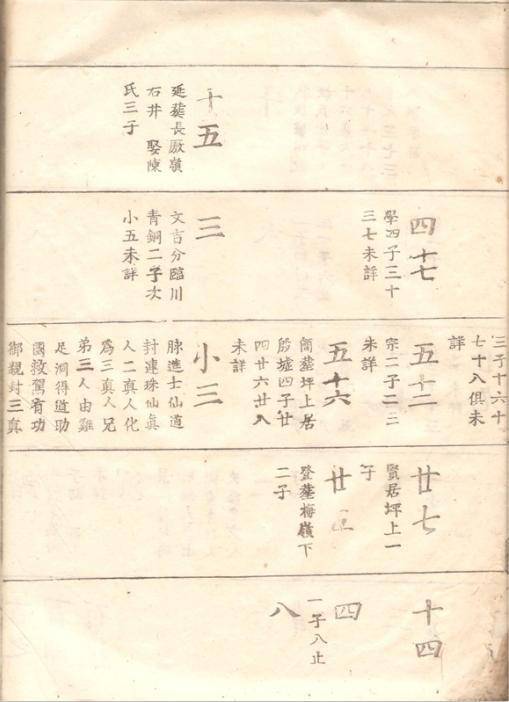 十五
延葬長嶺
石井 娶陳
氏三子
四十七
學四子三十
三七未詳
三
文吉分臨川
青銅二子次
小五未詳
三子十六十
七十八俱未
詳
五十二
宗二子二三
未詳
五十六
簡葬坪上居
殷墟四子廿
四廿六廿八
未詳
小三
脉進士仙道
封連珠仙真
人二真人化
為三真人兄
弟三人由難
足洞得道助
國救駕有功
御親封三真
廿七
賢居坪上一
子
廿一
登葬梅嶺下
二子
十四
四
一子八止
八